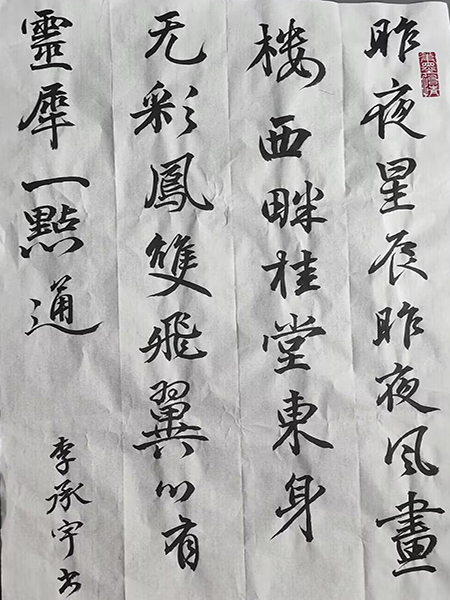 昨夜星辰昨夜风畫
楼西畔桂堂東身
无彩鳳雙飛翼心有
靈犀一點通
李承宇书